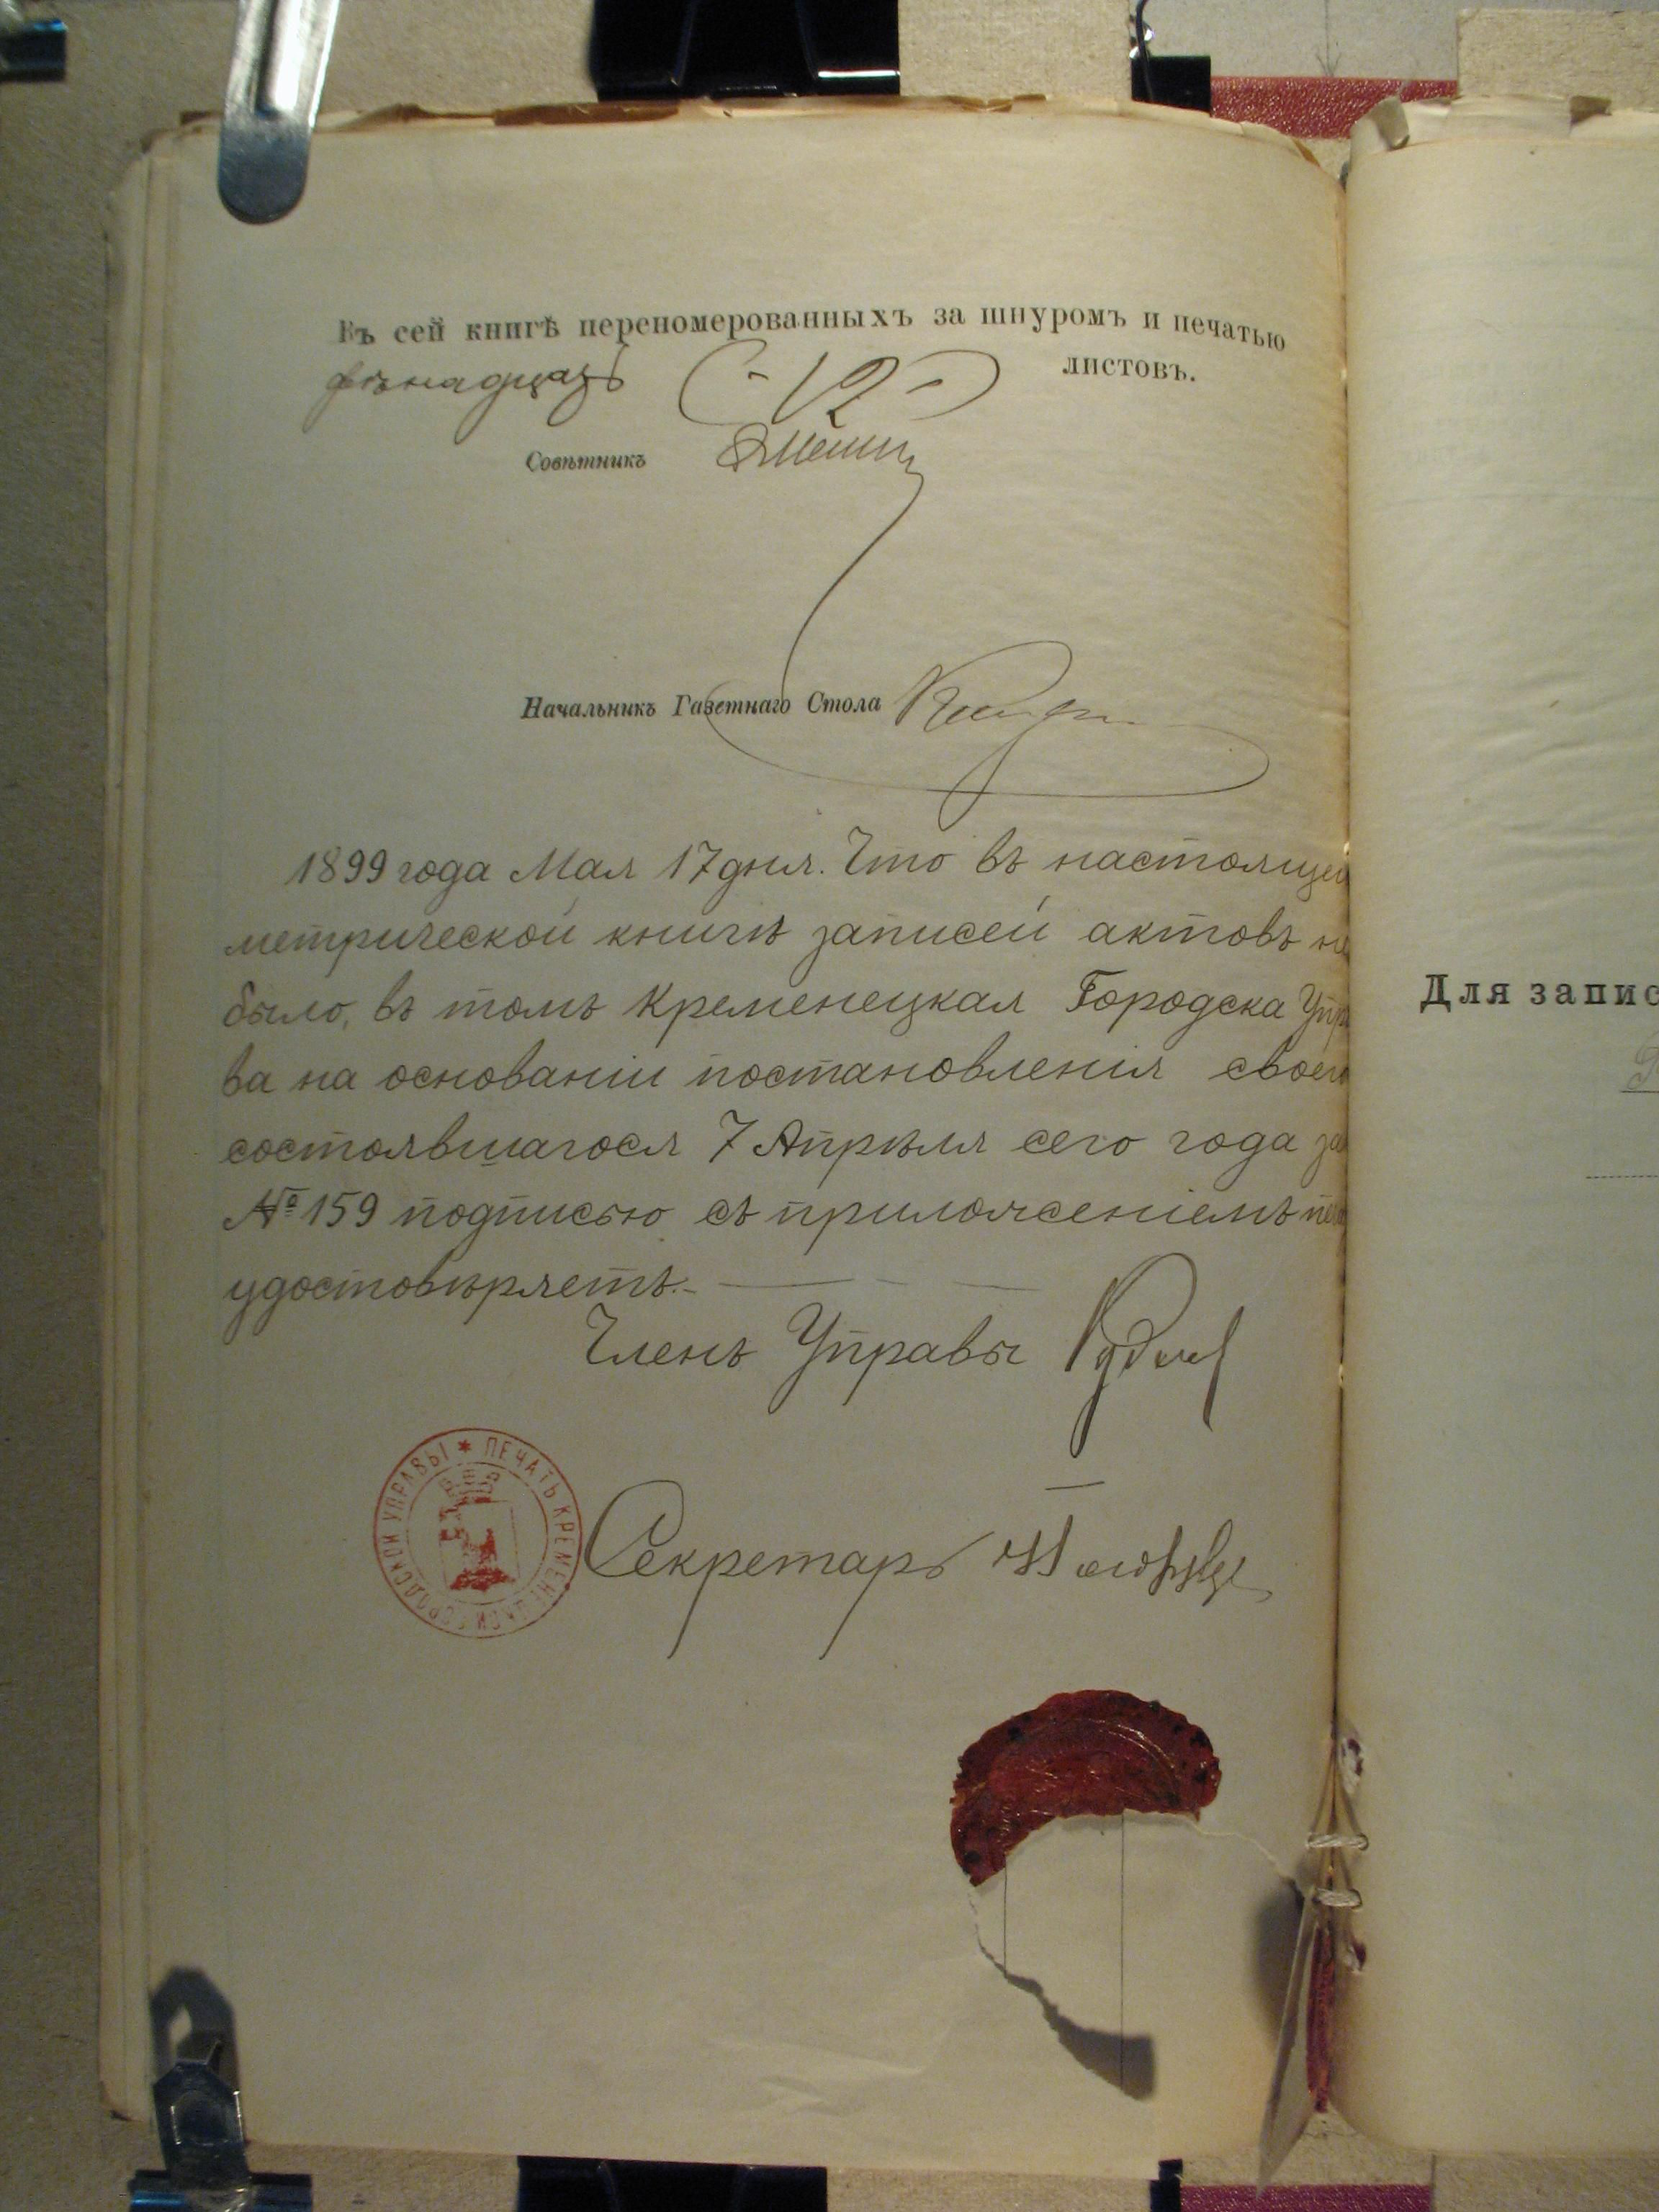 Въ сей книгѣ переномерованныхъ за шнуромъ и печатью
двѣнадцать (-12-) листовъ.
Совѣтникъ
Начальникъ Газетнаго Стола
1899 года Мая 17 дня. Что въ настоящей
метрической книгѣ записей актовъ не
было, въ томъ Кременецкая Городска Упра
ва на основаніи постановленія своего
состоявшагося 7 Апрѣля сего года за
№ 159 подписью съ приложеніемъ
удостовѣряетъ.-
Членъ Управы
ПЕЧАТЬ КРЕМЕНЕЦКОЙ ГОРОДСКОЙ УПРАВЫ
Секретарь
Для запис